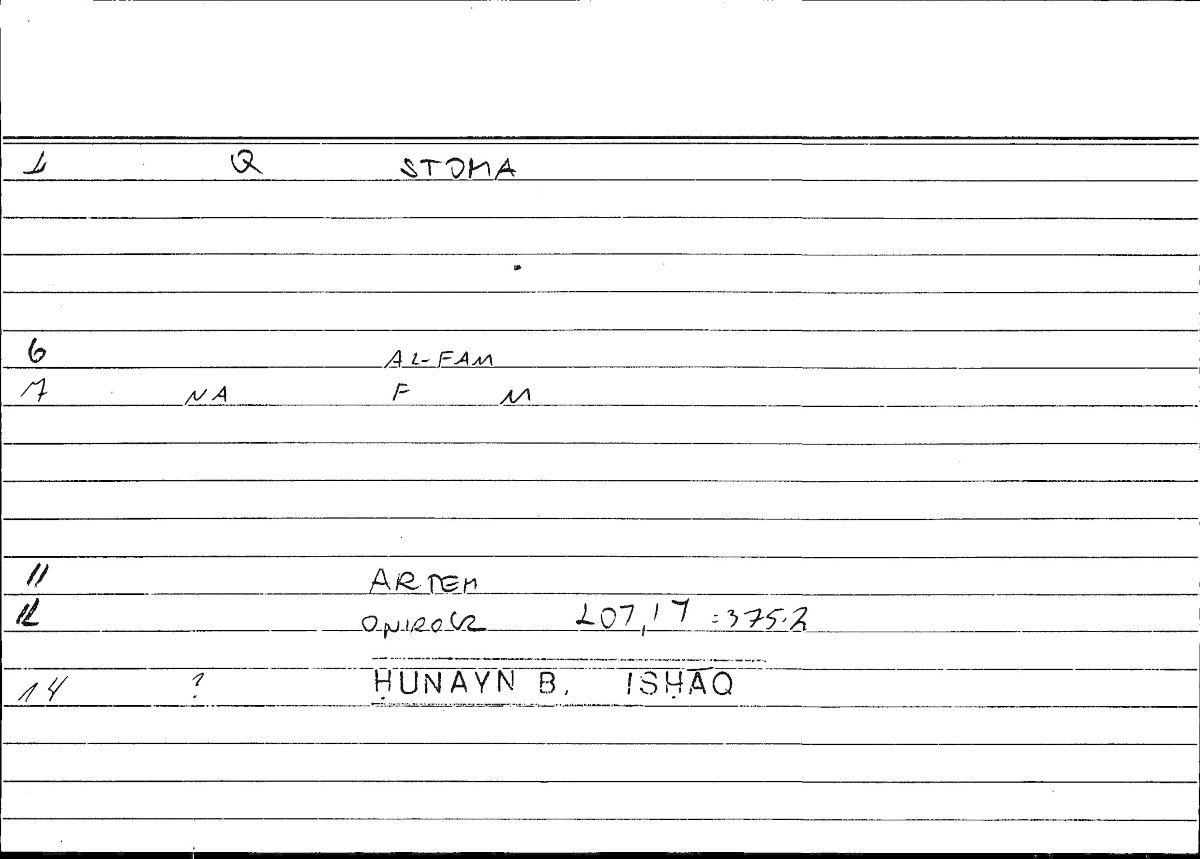 1 Q STOMA
6 AL-FAM
7 NA F M
11 ARTEM
12 ONIROCR 207,17 =375.2
14 ? ḤUNAYN B. ISḤĀQ